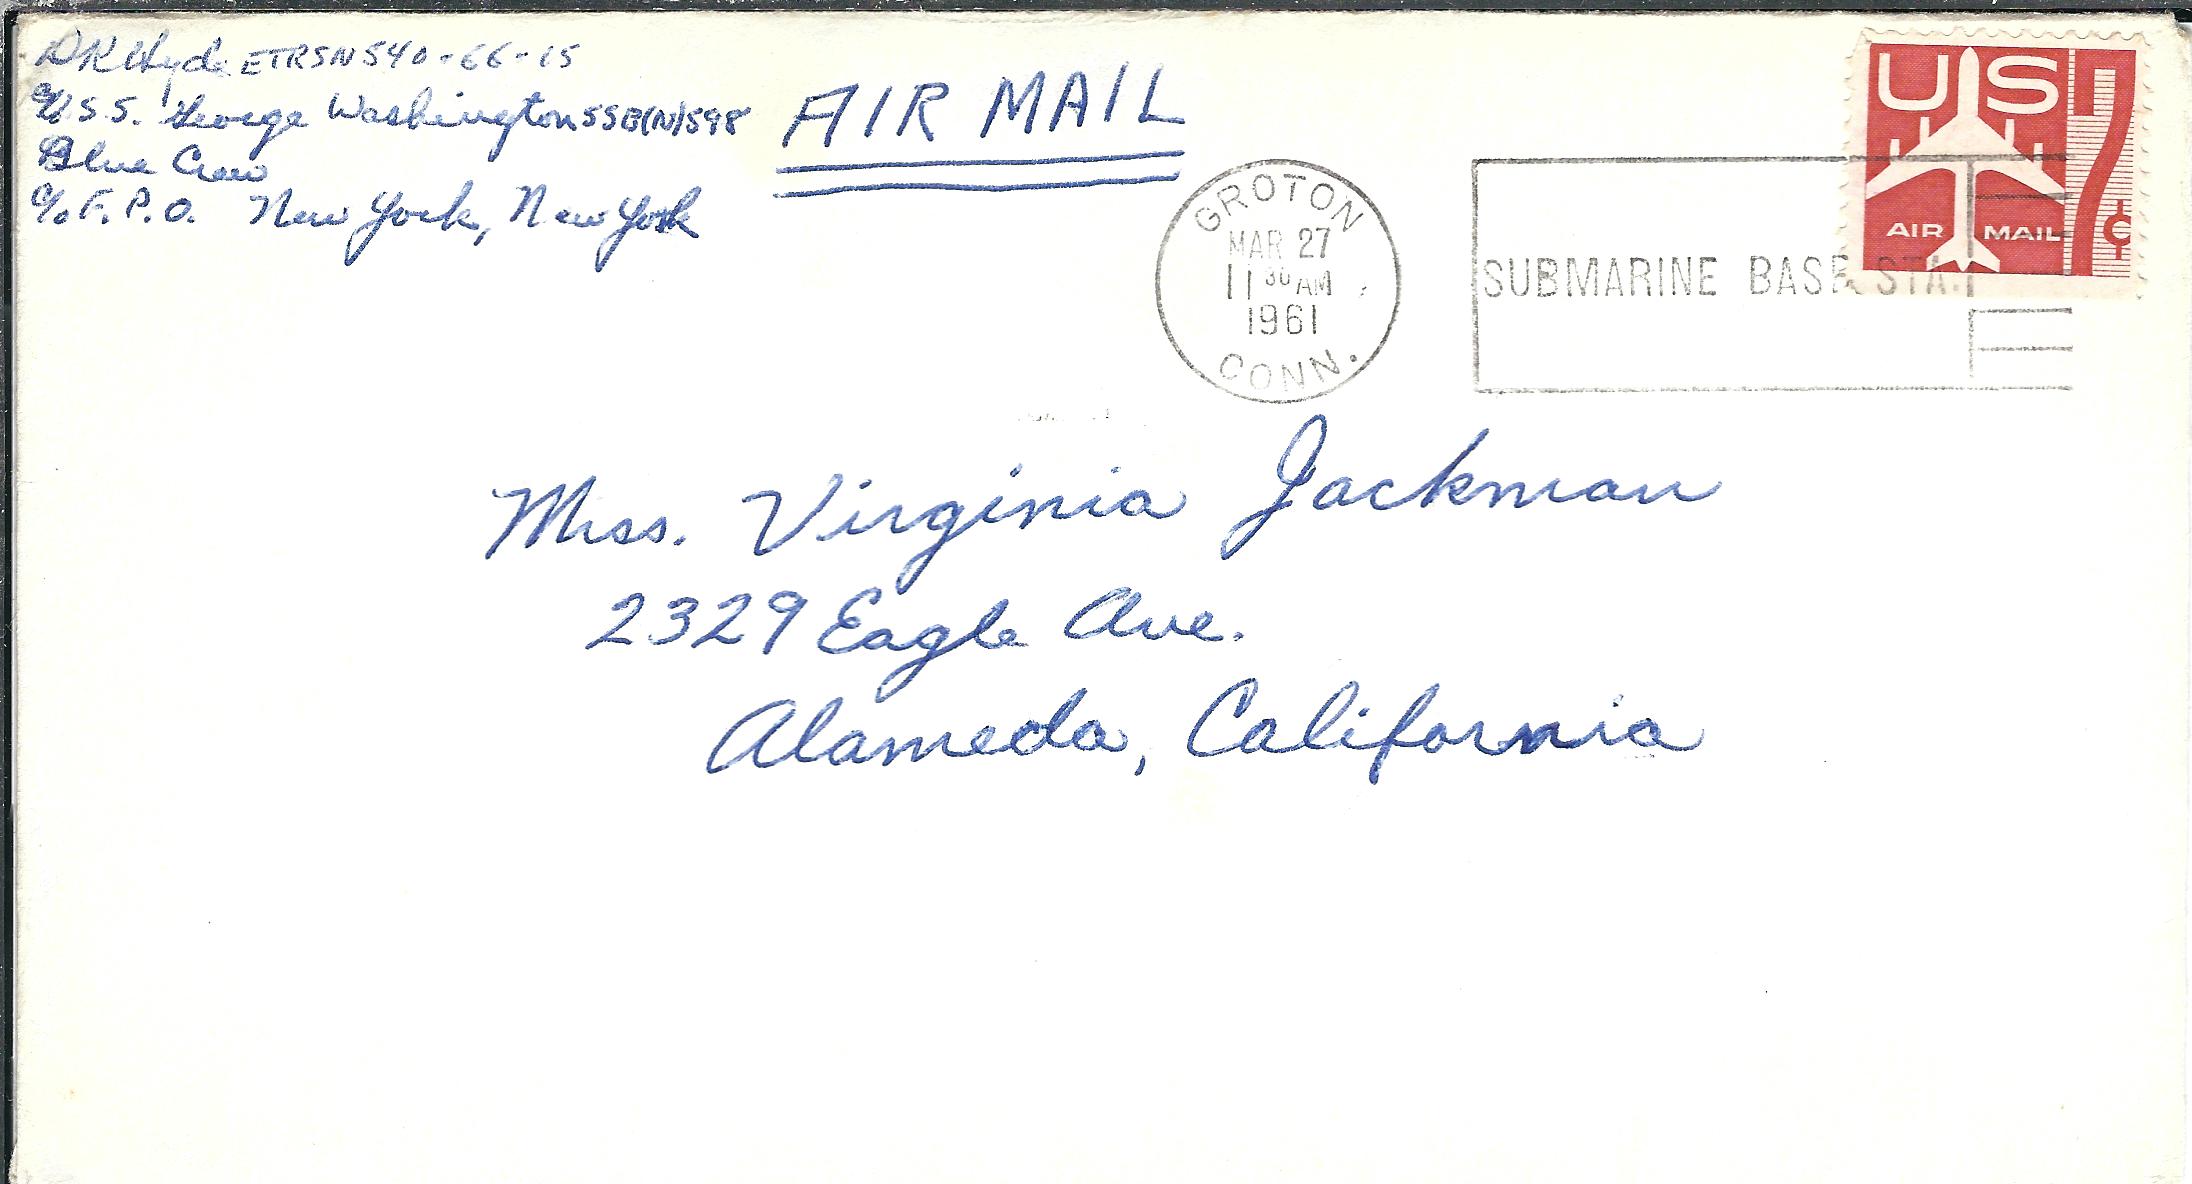 DK Hyde ETRSN 540-66-15
U.S.S. George Washington SSB(N)598
Blue Crew
c/o F.P.O. New York, New York
AIR MAIL
US
7¢
AIR MAIL
GROTON
MAR 27
11 30 AM
1961
CONN.
SUBMARINE BASE STA.
Miss. Virginia Jackman
2329 Eagle Ave.
Alameda, California